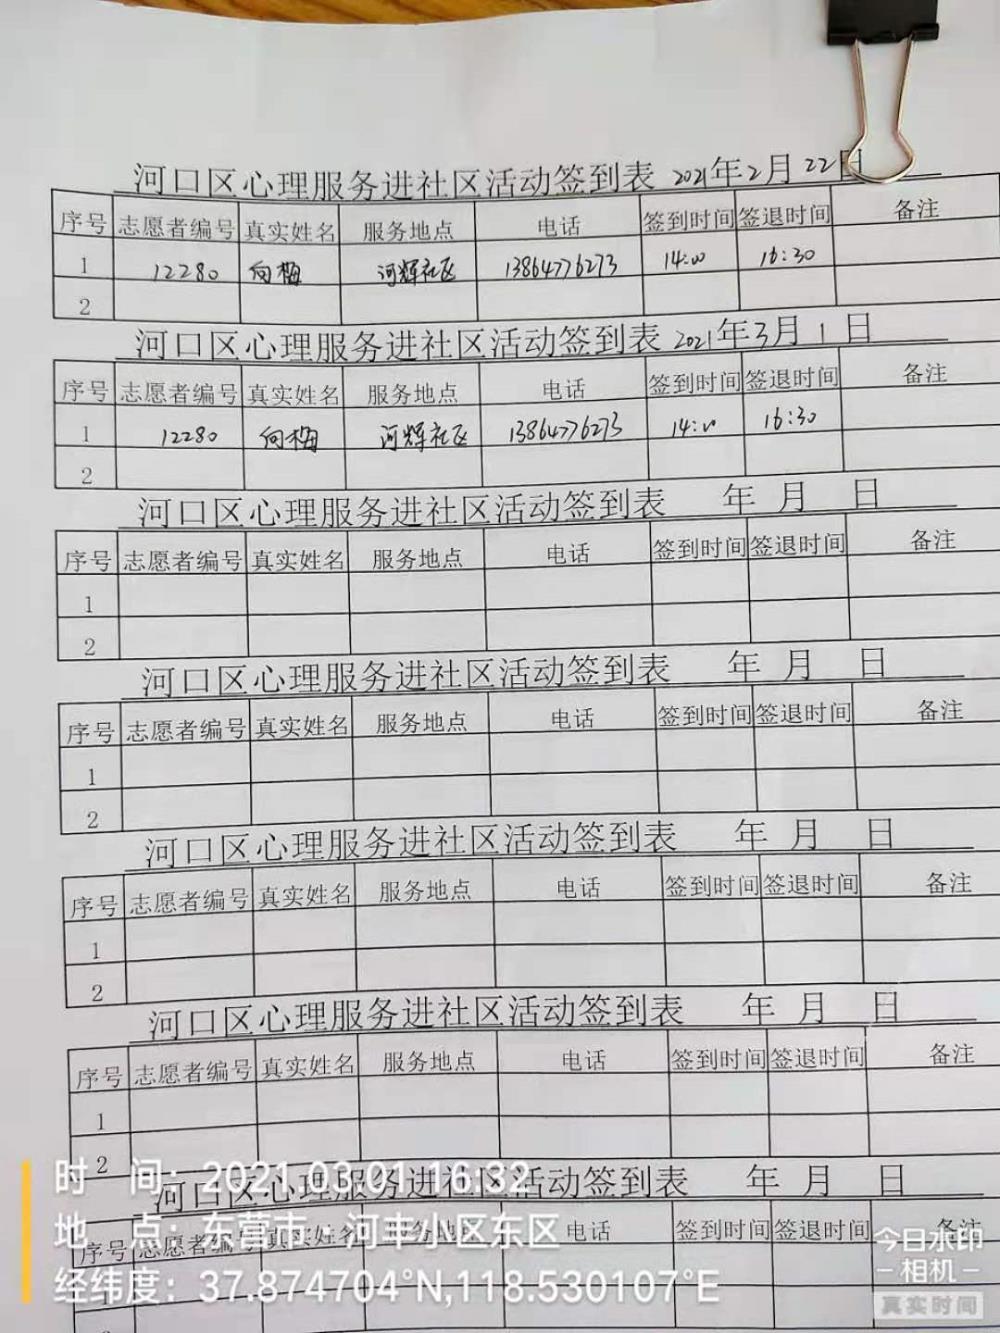 河口区心理服务进社区活动签到表 2021年2月22日
序号 志愿者编号 真实姓名 服务地点 电话 签到时间 签退时间 备注
1 12280 向梅 河辉社区 13864776273 14:00 16:30
2
河口区心理服务进社区活动签到表 2021年3月1日
序号 志愿者编号 真实姓名 服务地点 电话 签到时间 签退时间 备注
1 12280 向梅 河辉社区 13864776273 14:00 16:30
2
河口区心理服务进社区活动签到表 年 月 日
序号 志愿者编号 真实姓名 服务地点 电话 签到时间 签退时间 备注
1
2
河口区心理服务进社区活动签到表 年 月 日
序号 志愿者编号 真实姓名 服务地点 电话 签到时间 签退时间 备注
1
2
河口区心理服务进社区活动签到表 年 月 日
序号 志愿者编号 真实姓名 服务地点 电话 签到时间 签退时间 备注
1
2
河口区心理服务进社区活动签到表 年 月 日
序号 志愿者编号 真实姓名 服务地点 电话 签到时间 签退时间 备注
1
2
河口区心理服务进社区活动签到表 年 月 日
序号 志愿者编号 真实姓名 服务地点 电话 签到时间 签退时间 备注
1
时 间：2021.03.01 16:32
地 点：东营市·河丰小区东区
经纬度：37.874704°N,118.530107°E
今日水印
-相机-
真实时间